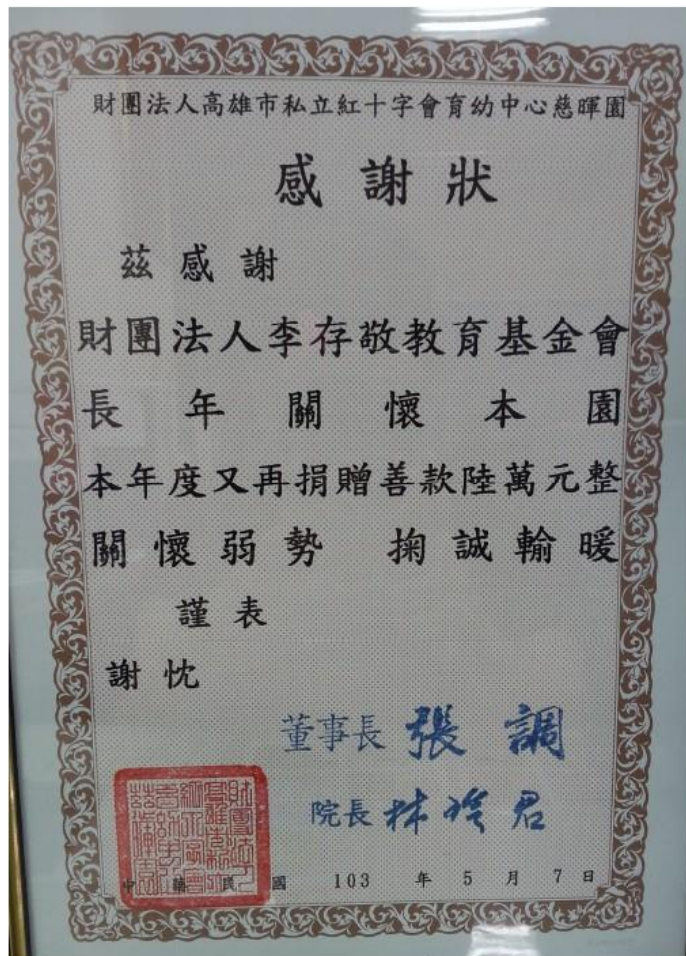 財團法人高雄市私立紅十字會育幼中心慈暉園
感謝狀
茲感謝
財團法人李存敬教育基金會
長年關懷本園
本年度又再捐贈善款陸萬元整
關懷弱勢 掬誠輸暖
謹表
謝忱
董事長 張調
院長 林玲君
中華民國 103 年 5 月 7 日